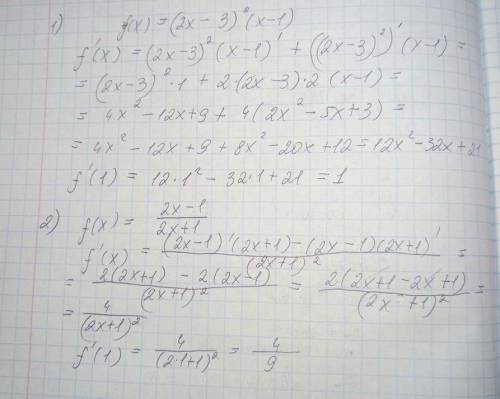 1) f(x) = (2x - 3)²(x - 1)
f'(x) = (2x-3)²(x-1)' + ((2x-3)²)'(x-1) =
= (2x-3)²·1 + 2·(2x-3)·2(x-1) =
= 4x² - 12x + 9 + 4(2x² - 5x + 3) =
= 4x² - 12x + 9 + 8x² - 20x + 12 = 12x² - 32x + 21
f'(1) = 12·1² - 32·1 + 21 = 1
2) f(x) = (2x-1)/(2x+1)
f'(x) = ((2x-1)'(2x+1) - (2x-1)(2x+1)')/(2x+1)² =
= (2(2x+1) - 2(2x-1))/(2x+1)² = (2(2x+1-2x+1))/(2x+1)² =
= 4/(2x+1)²
f'(1) = 4/(2·1+1)² = 4/9